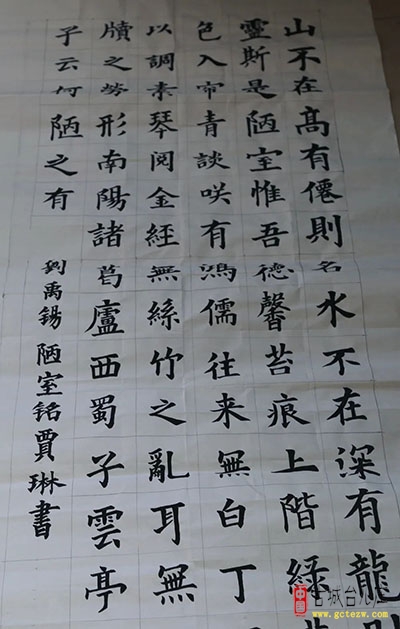 山不在高有僊則名水不在深有龍
靈斯是陋室惟吾德馨苔痕上階綠
色入帘青談咲有鴻儒往来無白丁
以調素琴閱金經無絲竹之亂耳無
牘之勞形南陽諸葛廬西蜀子雲亭
子云何陋之有
劉禹錫陋室銘賈琳書
中国
古城台儿
www.gctezw.com